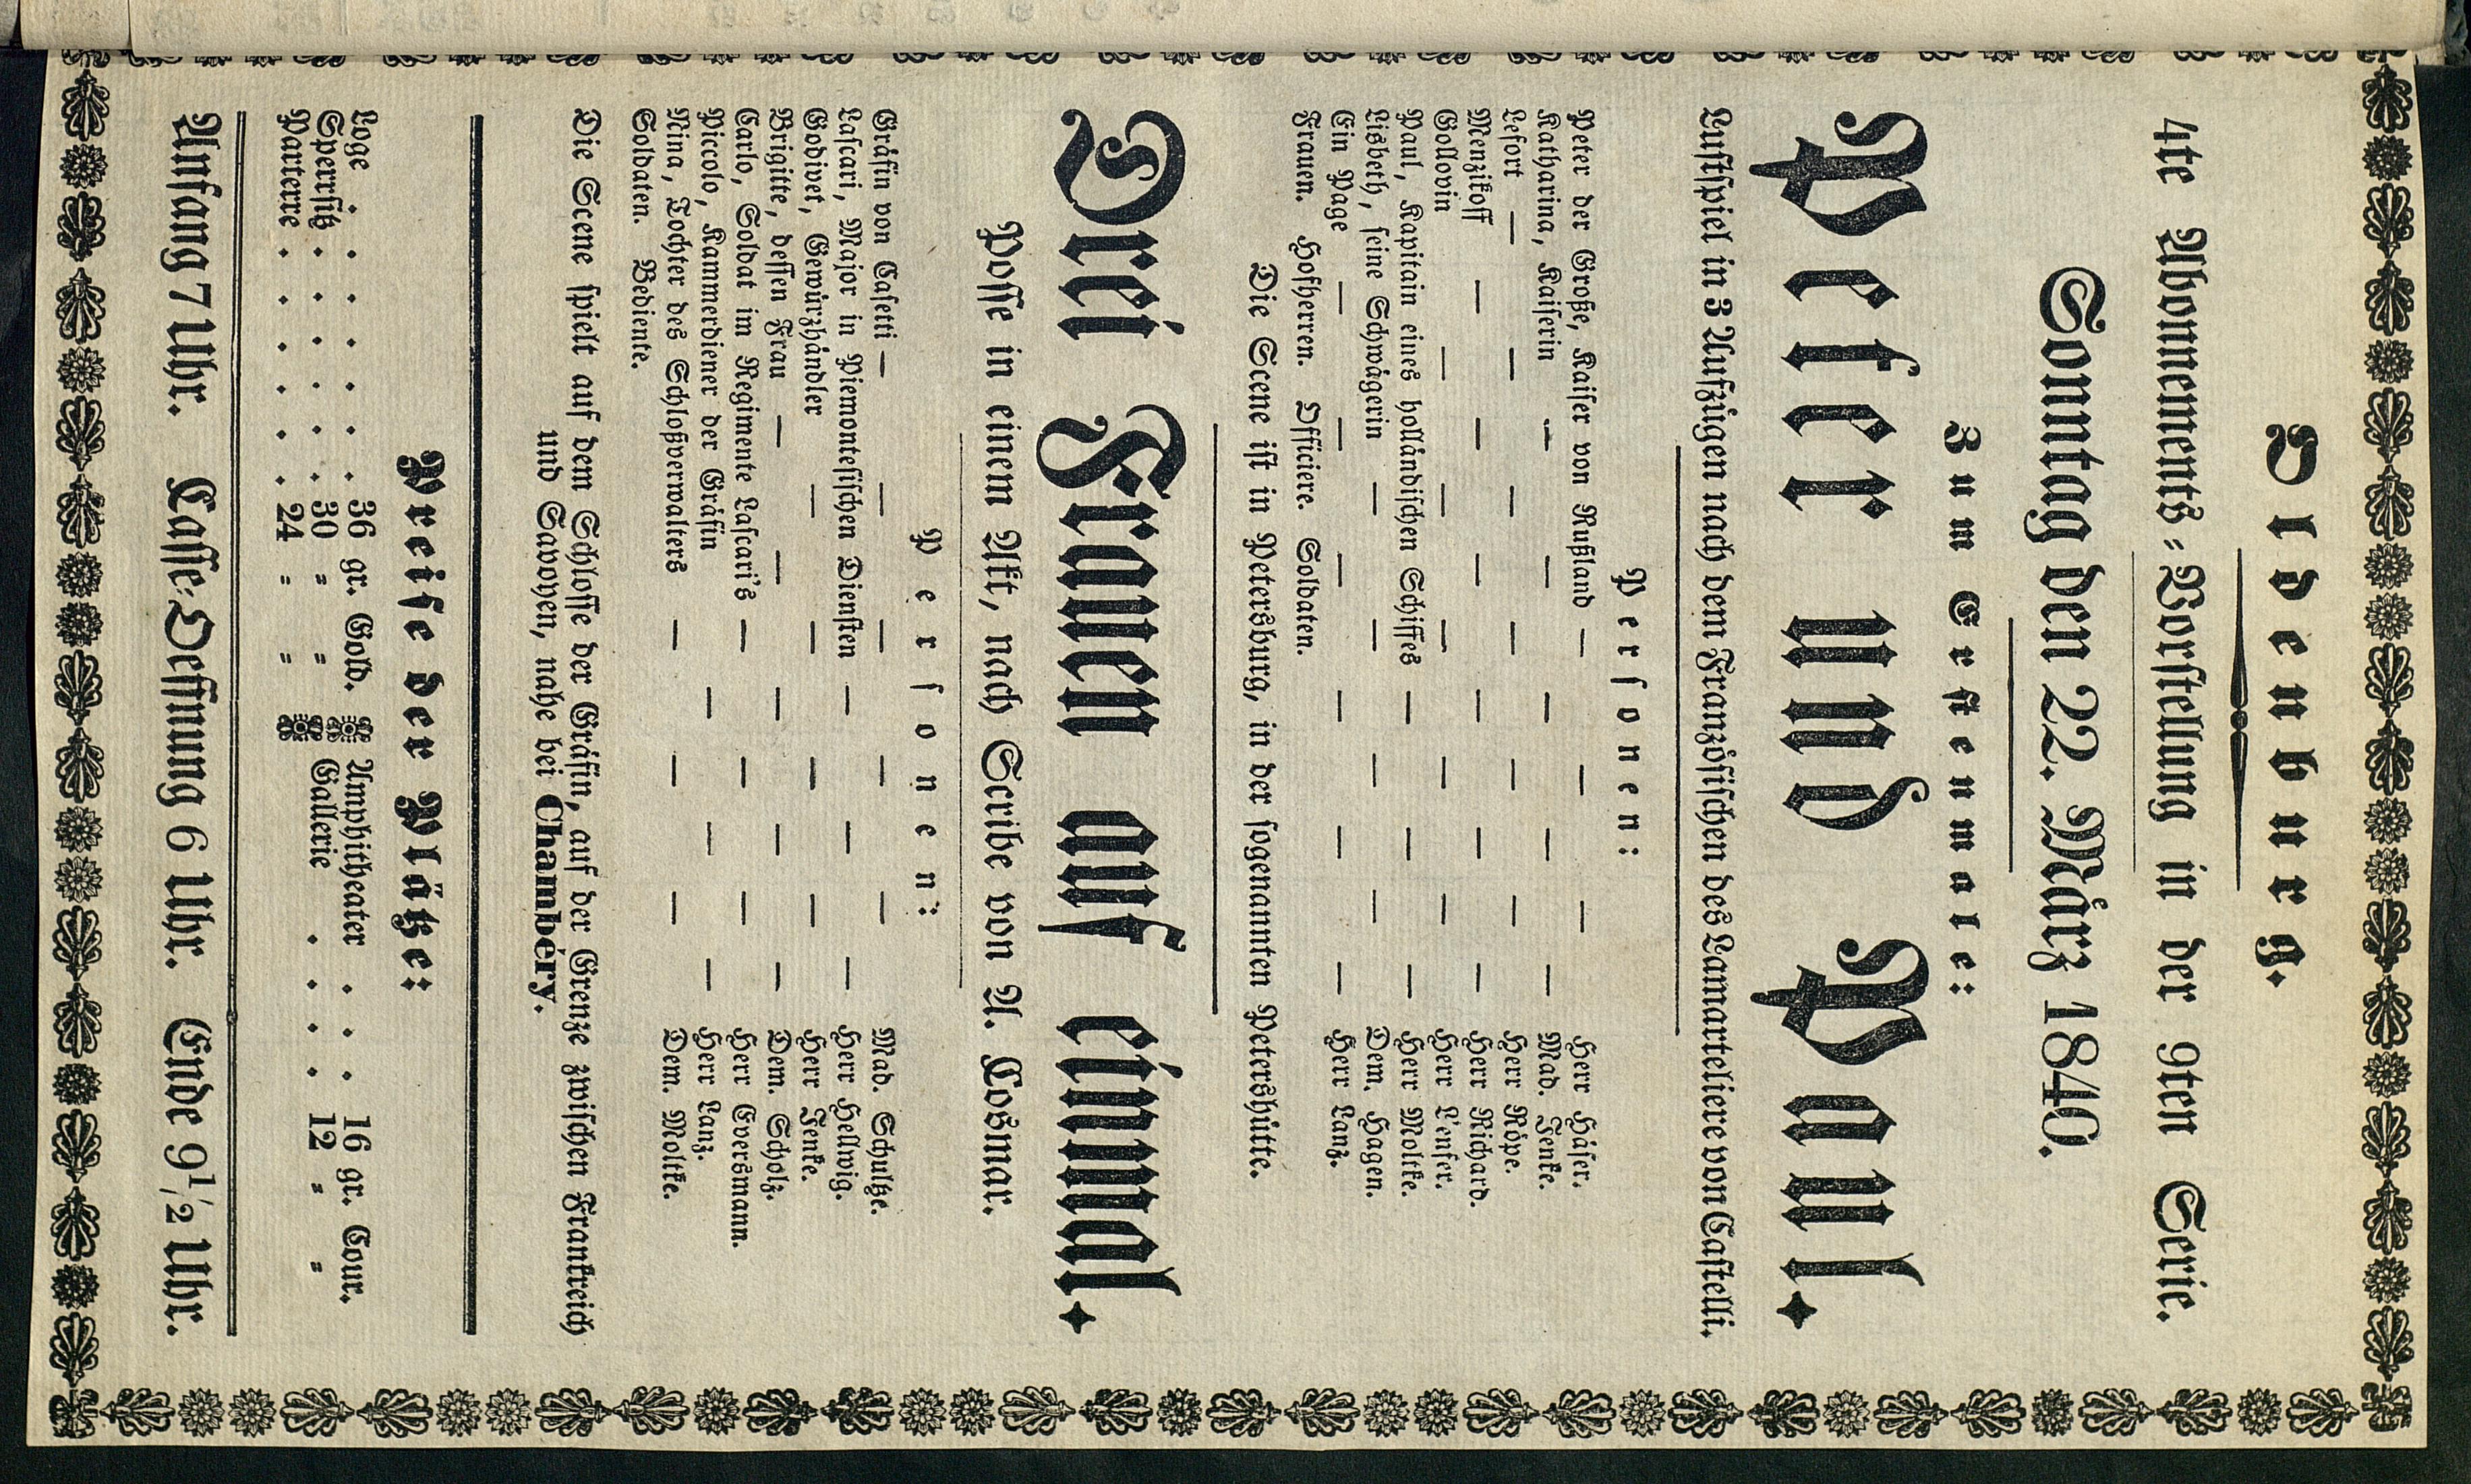 Oldenburg.
4te Abonnements-Vorstellung in der 9ten Serie.
Sonntag den 22. März 1840.
Zum Erstenmale:
Peter und Paul.
Lustspiel in 3 Aufzügen nach dem Französischen des Lamarteliere von Castelli.
Personen:
Peter der Große, Kaiser von Rußland — — — Herr Häser.
Katharina, Kaiserin — — — — — Mad. Jenke.
Lefort — — — — — — Herr Röpe.
Menzikoff — — — — — — Herr Richard.
Gollovin — — — — — Herr L'enser.
Paul, Kapitain eines holländischen Schiffes — — — Herr Moltke.
Lisbeth, seine Schwägerin — — — — Dem. Hagen.
Ein Page — — — — — — Herr Lanz.
Frauen. Hofherren. Officiere. Soldaten.
Die Scene ist in Petersburg, in der sogenannten Petershütte.
Drei Frauen auf einmal.
Posse in einem Akt, nach Scribe von A. Cosmar.
Personen:
Gräfin von Casetti — — — — — Mad. Schultze.
Lascari, Major in Piemontesischen Diensten — — — Herr Hellwig.
Godivet, Gewürzhändler — — — — Herr Jenke.
Brigitte, dessen Frau — — — — — Dem. Scholz.
Carlo, Soldat im Regimente Lascari's — — — Herr Eversmann.
Piccolo, Kammerdiener der Gräfin — — — Herr Lanz.
Nina, Tochter des Schloßverwalters — — — Dem. Moltke.
Soldaten. Bediente.
Die Scene spielt auf dem Schlosse der Gräfin, auf der Grenze zwischen Frankreich
und Savoyen, nahe bei Chambéry.
Preise der Plätze:
Loge . . . . . . . 36 gr. Gold. Amphitheater . . . 16 gr. Cour.
Sperrsitz . . . . . . 30 " " Gallerie . . . . 12 " "
Parterre . . . . . . 24 " "
Anfang 7 Uhr. Casse-Oeffnung 6 Uhr. Ende 9 1/2 Uhr.